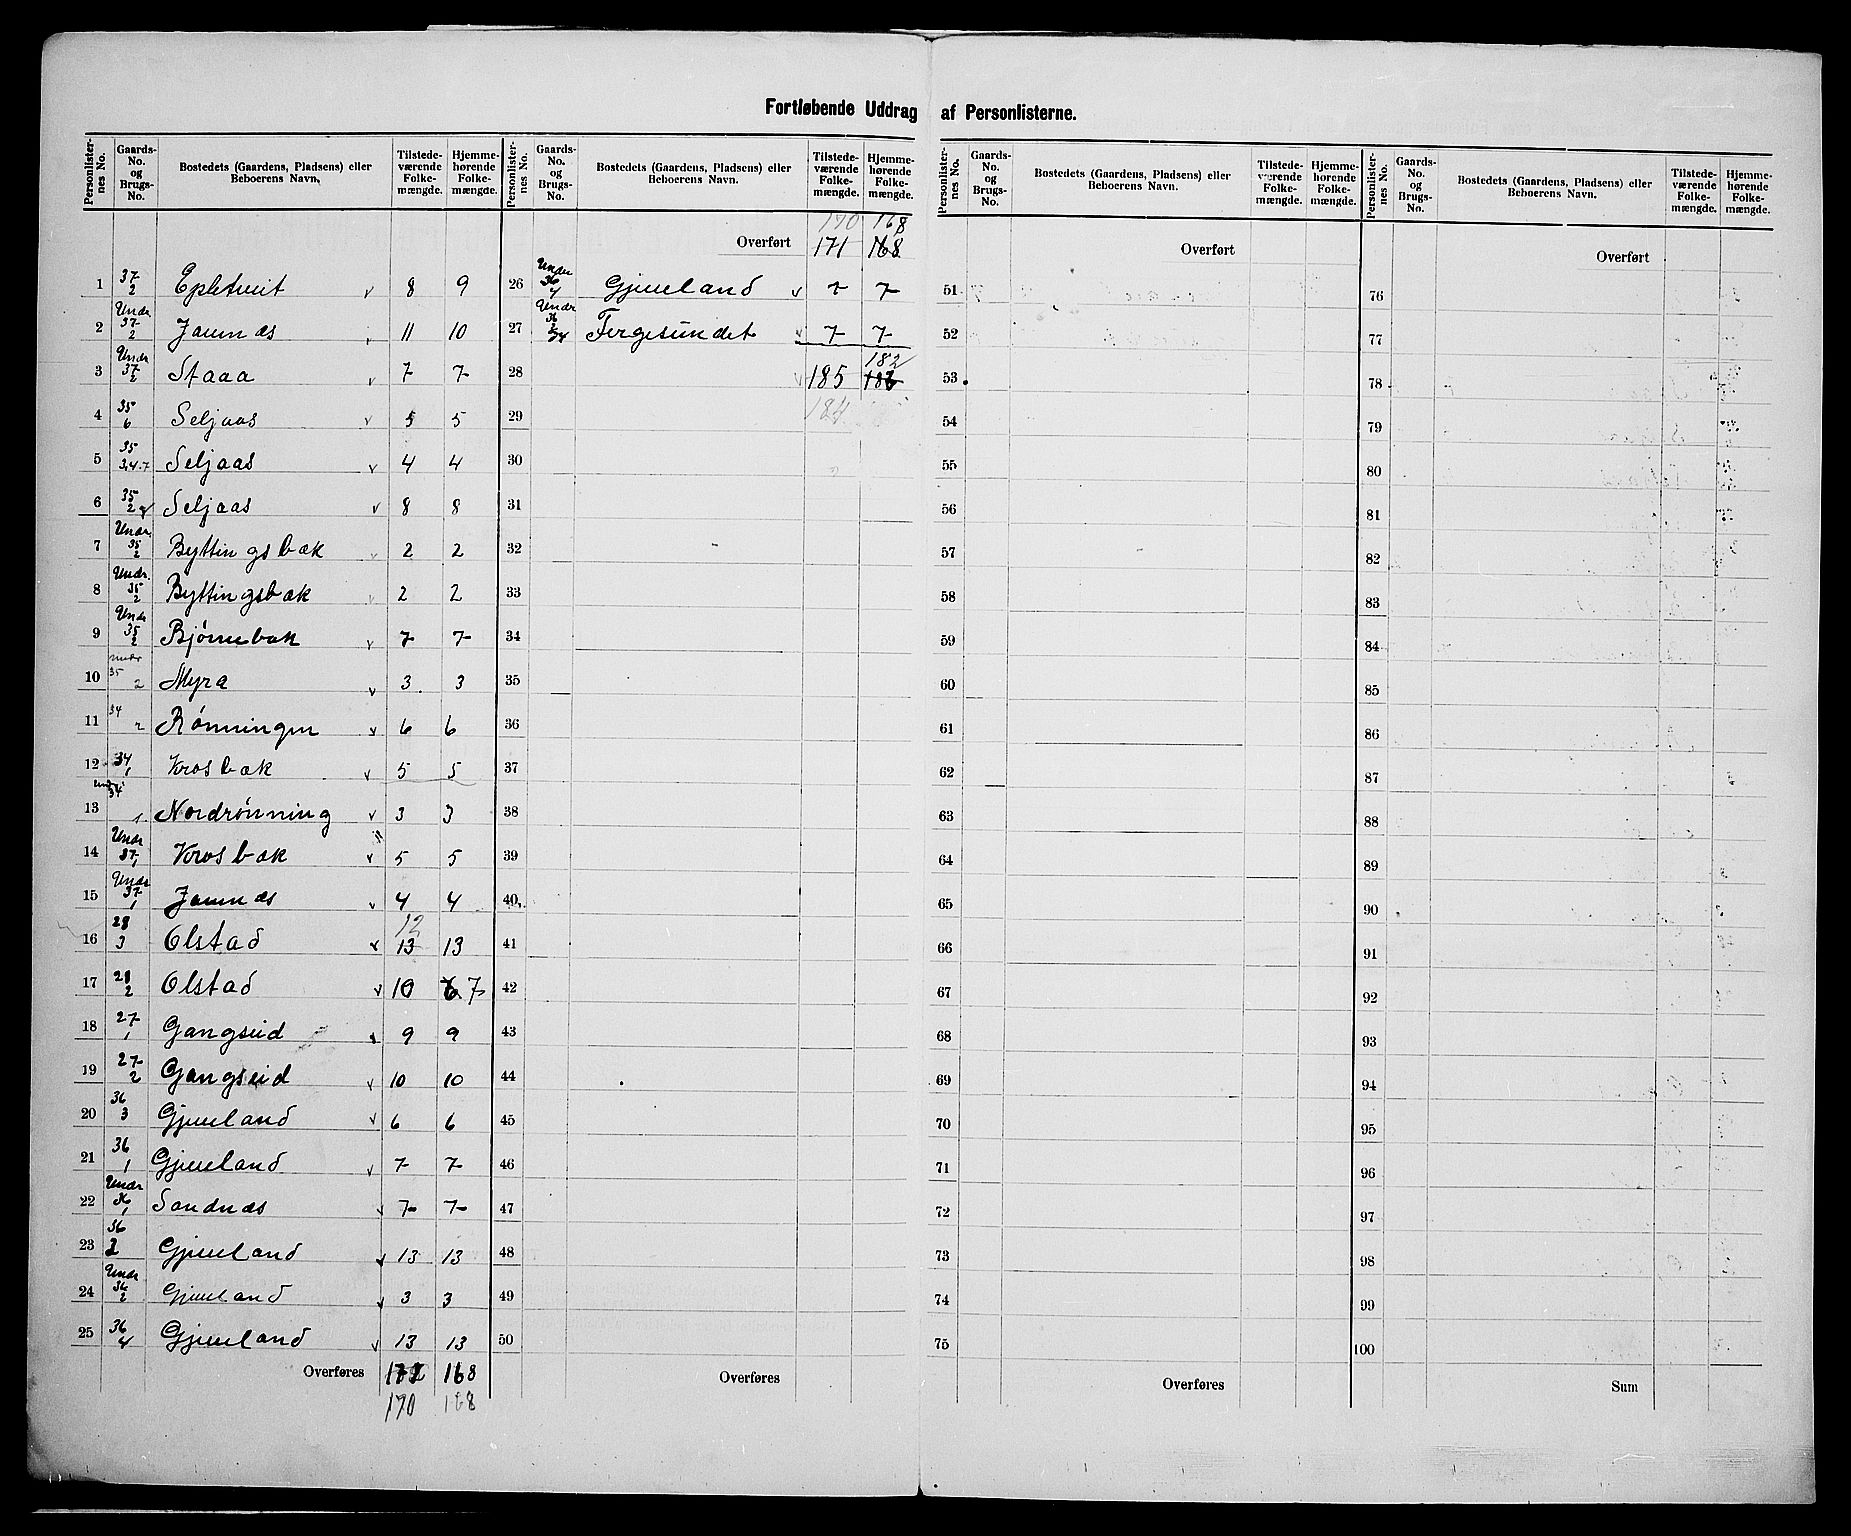 Fortløbende Uddrag af Personlisterne.
Personlister-nes No. Gaards-No. og Brugs-No. Bostedets (Gaardens, Pladsens) eller Beboerens Navn. Tilstede-værende Folke-mængde. Hjemme-hørende Folke-mængde.
1 37/2 Epletveit v 8 9
2 Under 37/2 Jamnæs v 11 10
3 Under 37/2 Staaa v 7 7
4 35/6 Seljaas v 5 5
5 35/3,4,7 Seljaas v 4 4
6 35/2 Seljaas v 8 8
7 Under 35/2 Byttingsbæk v 2 2
8 Under 35/2 Byttingsbæk v 2 2
9 Under 35/2 Bjørnebæk v 7 7
10 under 35/2 Myra v 3 3
11 34/2 Rønningen v 6 6
12 34/1 Krosbæk v 5 5
13 under 34/1 Nordrønning v 3 3
14 Under 37/1 Krosbæk v 5 5
15 Under 37/1 Jamnæs v 4 4
12
16 28/3 Olstad v 13 13
17 28/2 Olstad v 10 6 7
18 27/1 Gangseid v 9 9
19 27/2 Gangseid v 10 10
20 36/3 Gjeveland v 6 6
21 36/1 Gjeveland v 7 7
22 Under 36/1 Sandnæs v 7 7
23 36/2 Gjeveland v 13 13
24 Under 36/2 Gjeveland v 3 3
25 36/4 Gjeveland v 13 13
Overføres 171 168
170 168
Personlister-nes No. Gaards-No. og Brugs-No. Bostedets (Gaardens, Pladsens) eller Beboerens Navn. Tilstede-værende Folke-mængde. Hjemme-hørende Folke-mængde.
170 168
Overført 171 168
26 Under 36/4 Gjeveland v 7 7
27 Under 36 Fergesundet v 7 7
182
28 v 185
29 184
30
31
32
33
34
35
36
37
38
39
40
41
42
43
44
45
46
47
48
49
50
Overføres
Personlister-nes No. Gaards-No. og Brugs-No. Bostedets (Gaardens, Pladsens) eller Beboerens Navn. Tilstede-værende Folke-mængde. Hjemme-hørende Folke-mængde.
Overført
51
52
53
54
55
56
57
58
59
60
61
62
63
64
65
66
67
68
69
70
71
72
73
74
75
Overføres
Personlister-nes No. Gaards-No. og Brugs-No. Bostedets (Gaardens, Pladsens) eller Beboerens Navn. Tilstede-værende Folke-mængde. Hjemme-hørende Folke-mængde.
Overført
76
77
78
79
80
81
82
83
84
85
86
87
88
89
90
91
92
93
94
95
96
97
98
99
100
Sum